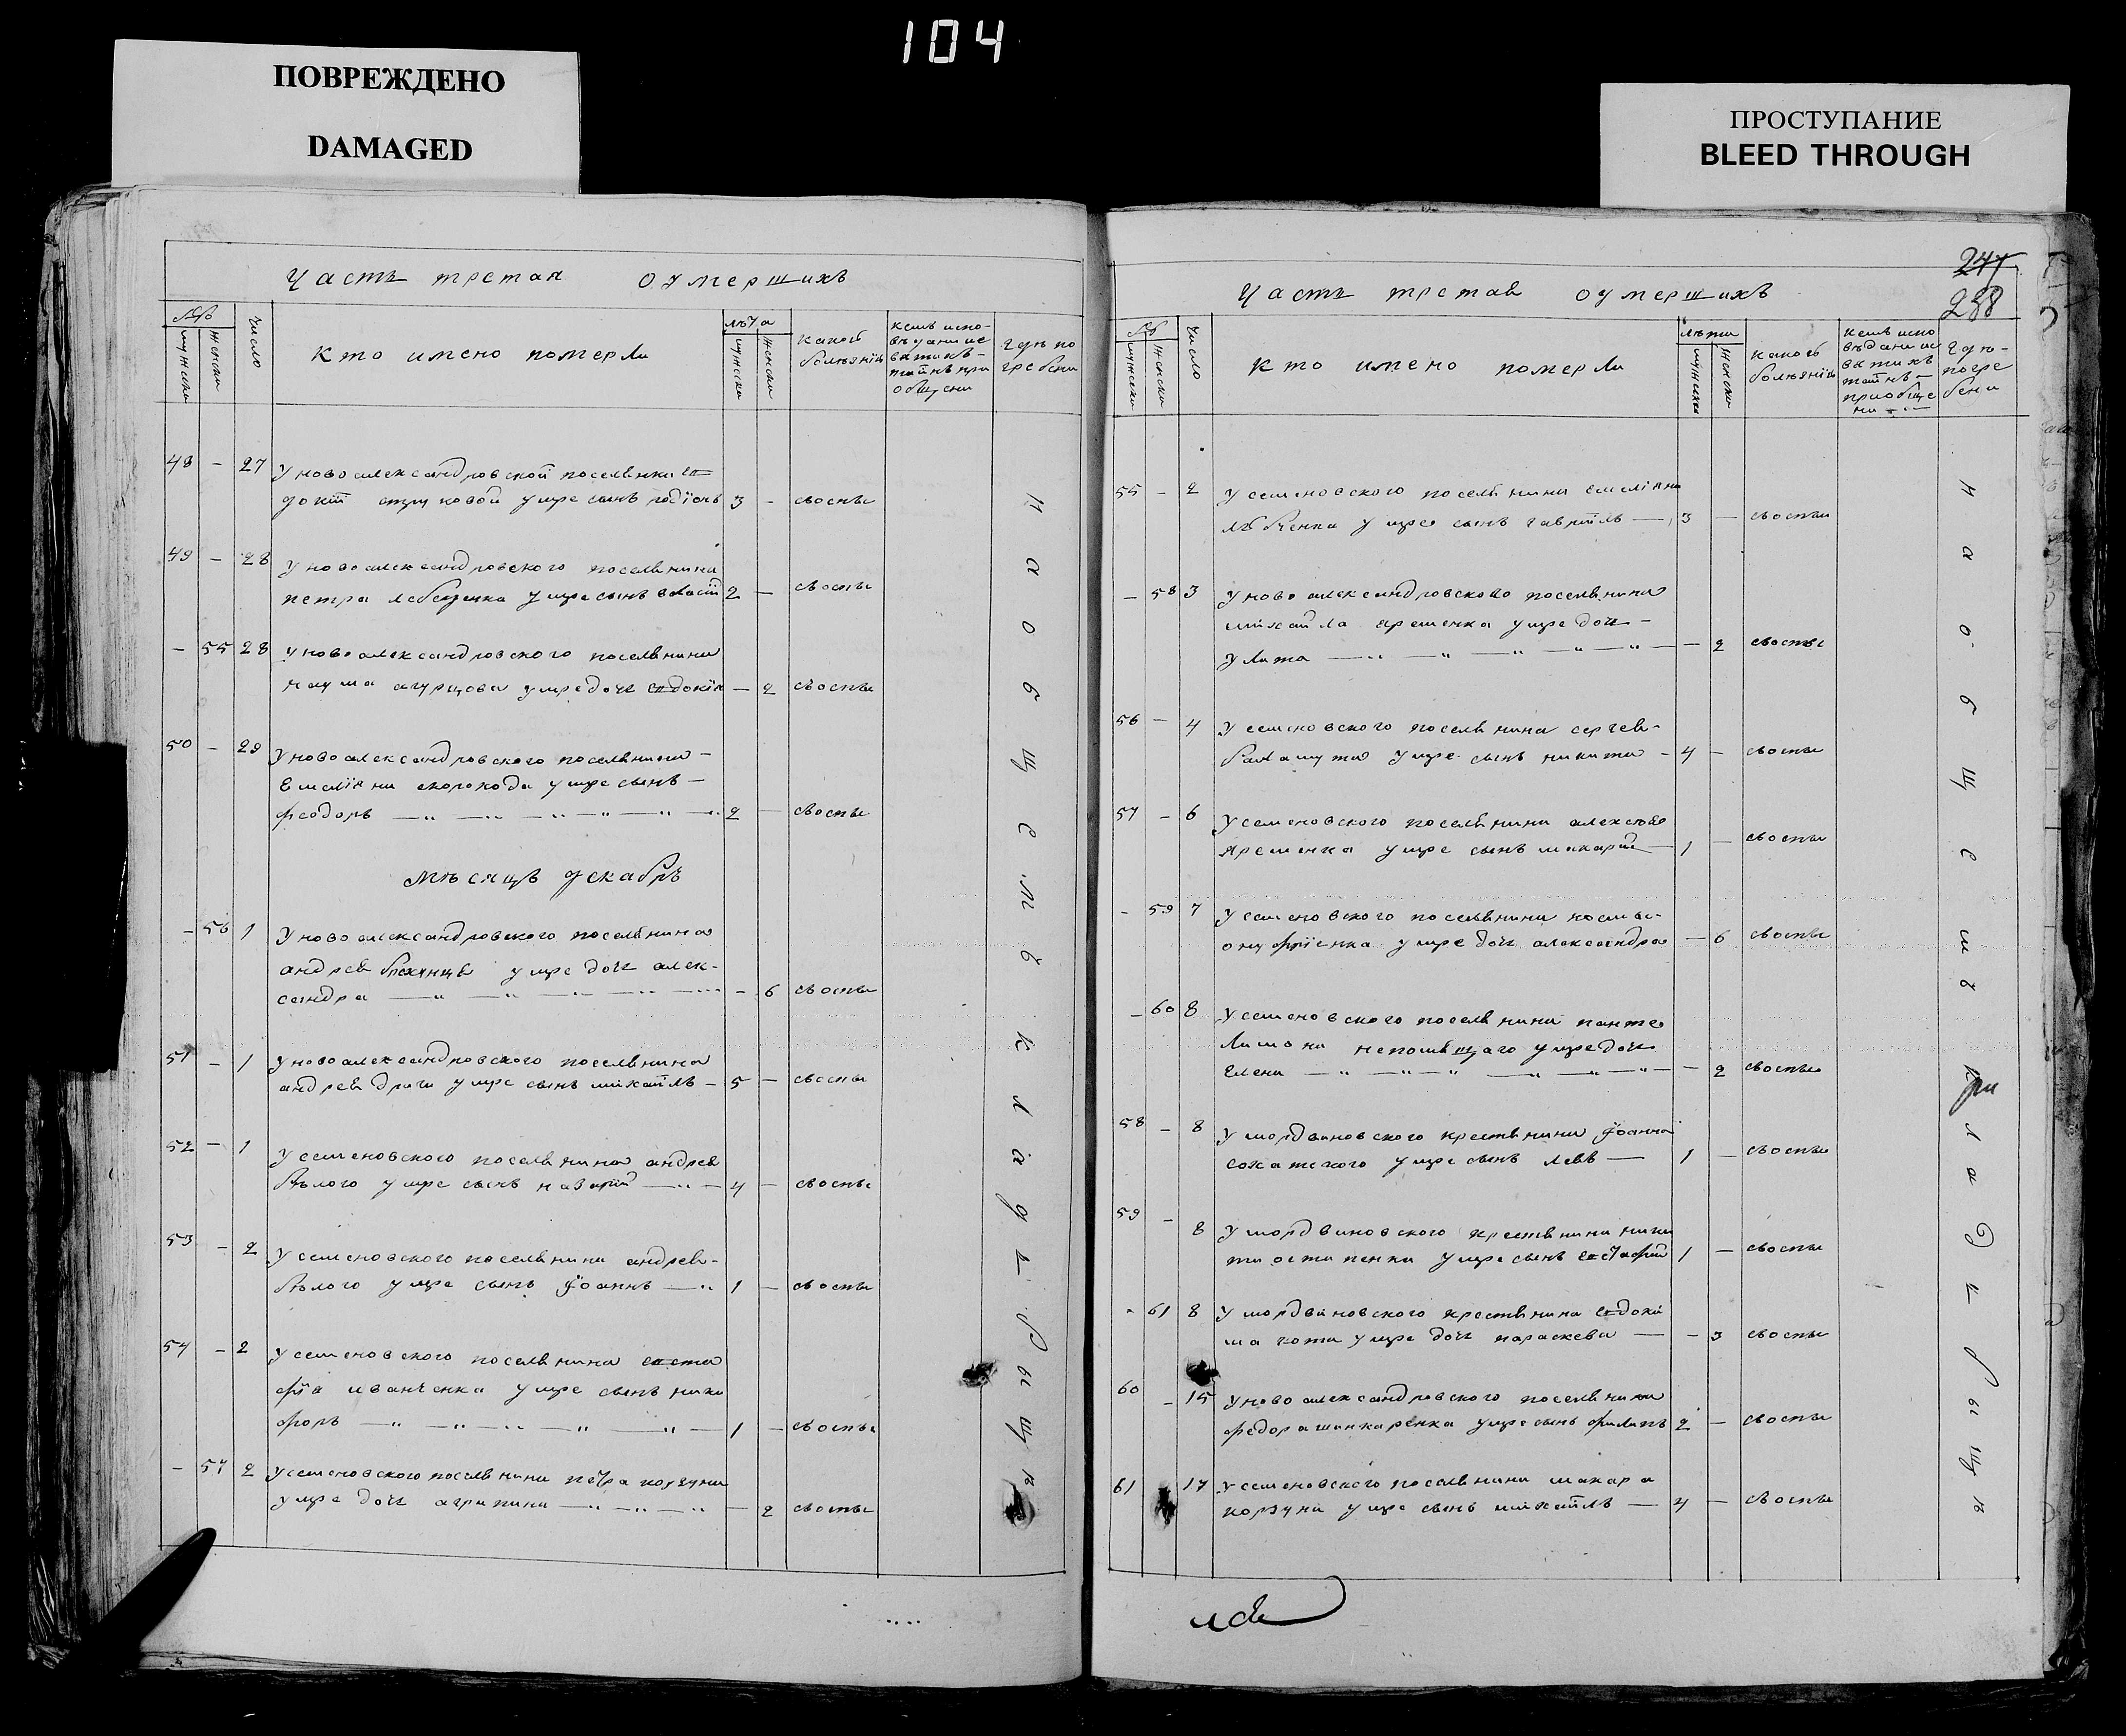 104
ПОВРЕЖДЕНО
DAMAGED
ПРОСТУПАНИЕ
BLEED THROUGH
Часть третая оумершихъ
№
мужески
женски
число
кто имено померли
лѣта
мужеска
женски
какой
болѣзнію
кемъ испо-
вѣданы и с
вятихъ
таинъ при
общени
гдѣ по
гребени
48 - 27 Уновоалександровской поселянки ев
докіи умре сынъ родіонъ 3 - своспы
49 - 28 Уновоалександровского поселянина
петра лебеденка умре сынъ власій 2 - своспы
- 55 28 Уновоалександровского поселянина
наума агурцова умре дочь евдокія - 2 своспы
50 - 29 Уновоалександровского поселянина -
Емеліяна скорохода умре сынъ -
феодоръ 2 - своспы
Мѣсяцъ декабрь
- 56 1 Уновоалександровского поселянина
андрея умре дочь алек-
сандра - 6 своспы
51 - 1 Уновоалександровского поселянина
андрея драги умре сынъ михаилъ - 5 - своспы
52 - 1 Усеменовского поселянина андрея
бѣлого умре сынъ назарій 4 - своспы
53 - 2 Усеменовского поселянина андрея -
бѣлого умре сынъ Іоаннъ 1 - своспы
54 - 2 Усеменовского поселянина евста
фія иванченка умре сынъ ники
форъ 1 - своспы
- 57 2 Усеменовского поселянина петра корзуна
умре дочь агрипина - 2 своспы
на общемъ кладѣ рыщѣ
247
258
Часть третая оумершихъ
№
мужески
женски
число
кто имено померли
лѣта
мужеска
женски
какой
болѣзнію
кемъ испо
вѣдани и с
вятихъ
таинъ -
приобще
ни
гдѣ -
погре
бени
55 - 2 Усеменовского поселянина емеліяна
умре сынъ гавріилъ 3 - своспы
- 58 3 Уновоалександровсково поселянина
михаила яременка умре дочь -
Улита - 2 своспы
56 - 4 Усеменовского поселянина сергея -
балашута умре сынъ никита - 4 - своспы
57 - 6 Усеменовского поселянина алексѣя
яременка умре сынъ макарій 1 - своспы
- 59 7 Усеменовского поселянина космы -
онуфріенка умре дочь александра - 6 своспы
- 60 8 Усеменовского поселянина панте
лимона непошвящаго умре дочь
Елена - 2 своспы
58 - 8 Умордвиновского крествянина Іоанна
сохатского умре сынъ левъ 1 - своспы
59 - 8 Умордвиновского крествянина ники
ти остапенка умре сынъ евстафій 1 - своспы
- 61 8 Умордвиновского крествянина евдоки
ма кота умре дочь параскева - 3 своспы
60 - 15 Уновоалександровского поселянина
федора шинкаренка умре сынъ филипъ 2 - своспы
61 17 Усеменовского поселянина макара
корзуна умре сынъ михаилъ 4 - своспы
на общемъ кладѣ рыщѣ